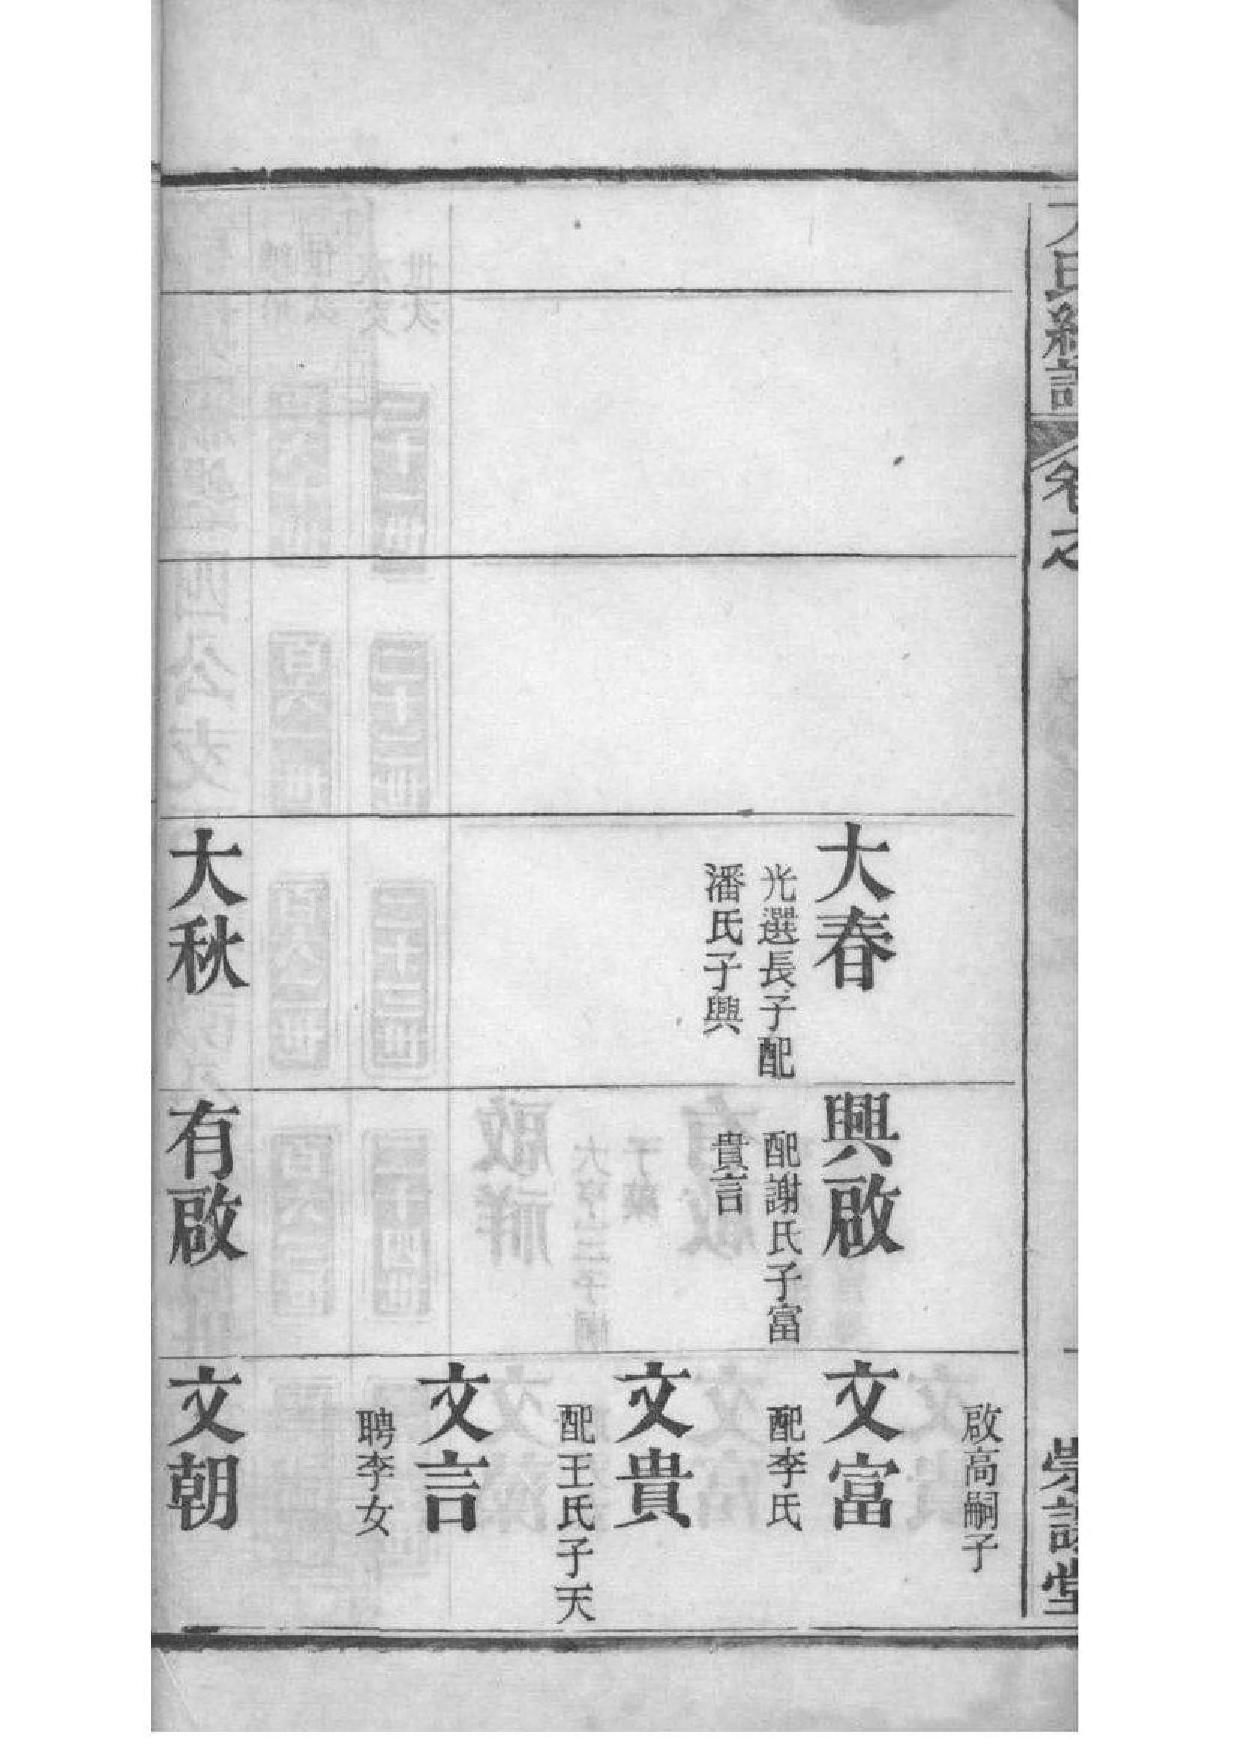 氏續譜
卷之
崇譜堂
大春
光選長子配
潘氏子興
大秋
興啟
配謝氏子富
貴言
有啟
啟高嗣子
文富
配李氏
文貴
配王氏子天
文言
聘李女
文朝